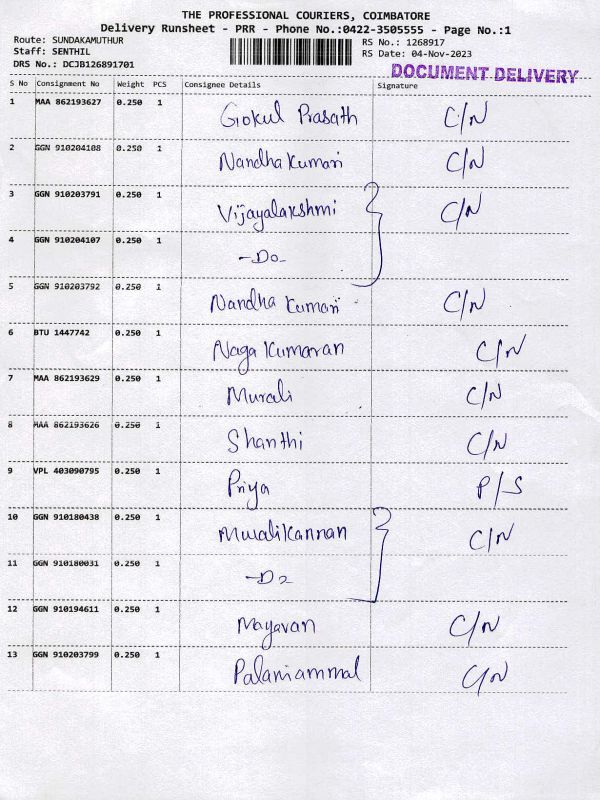 THE PROFESSIONAL COURIERS, COIMBATORE
Delivery Runsheet - PRR - Phone No.:0422-3505555 - Page No.:1
Route: SUNDAKAMUTHUR
Staff: SENTHIL
DRS No.: DCJB126891701
RS No.: 1268917
RS Date: 04-Nov-2023
DOCUMENT DELIVERY
S No Consignment No Weight PCS Consignee Details Signature
1 MAA 862193627 0.250 1 Gokul Prasath C/N
2 GGN 910204108 0.250 1 Nandha Kumari C/N
3 GGN 910203791 0.250 1 Vijayalakshmi C/N
4 GGN 910204107 0.250 1 -Do-
5 GGN 910203792 0.250 1 Nandha Kumari C/N
6 BTU 1447742 0.250 1 Naga Kumaran C/N
7 MAA 862193629 0.250 1 Murali C/N
8 MAA 862193626 0.250 1 Shanthi C/N
9 VPL 403090795 0.250 1 Priya P/S
10 GGN 910180438 0.250 1 Muralikannan C/N
11 GGN 910180031 0.250 1 -Do
12 GGN 910194611 0.250 1 Mayavan C/N
13 GGN 910203799 0.250 1 Palaniammal C/N